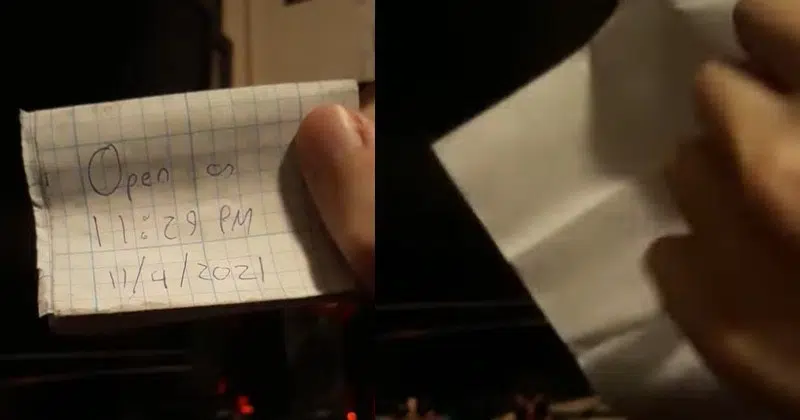 Open on
11:29 PM
11/4/2021